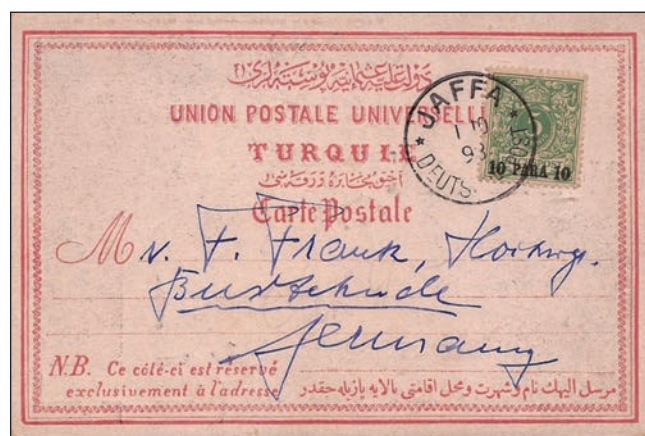 دولت عليه عثمانيه پوسته لرى
UNION POSTALE UNIVERSELLE
TURQUIE
Carte Postale
JAFFA
DEUTSCHE POST
5
10 PARA 10
Mr. F. Frank,
Buxtehude
Germany
N.B. Ce côté-ci est réservé
exclusivement à l'adresse
مرسل اليهك نام و شهرت و محل اقامتى بالايه يازيله جقدر